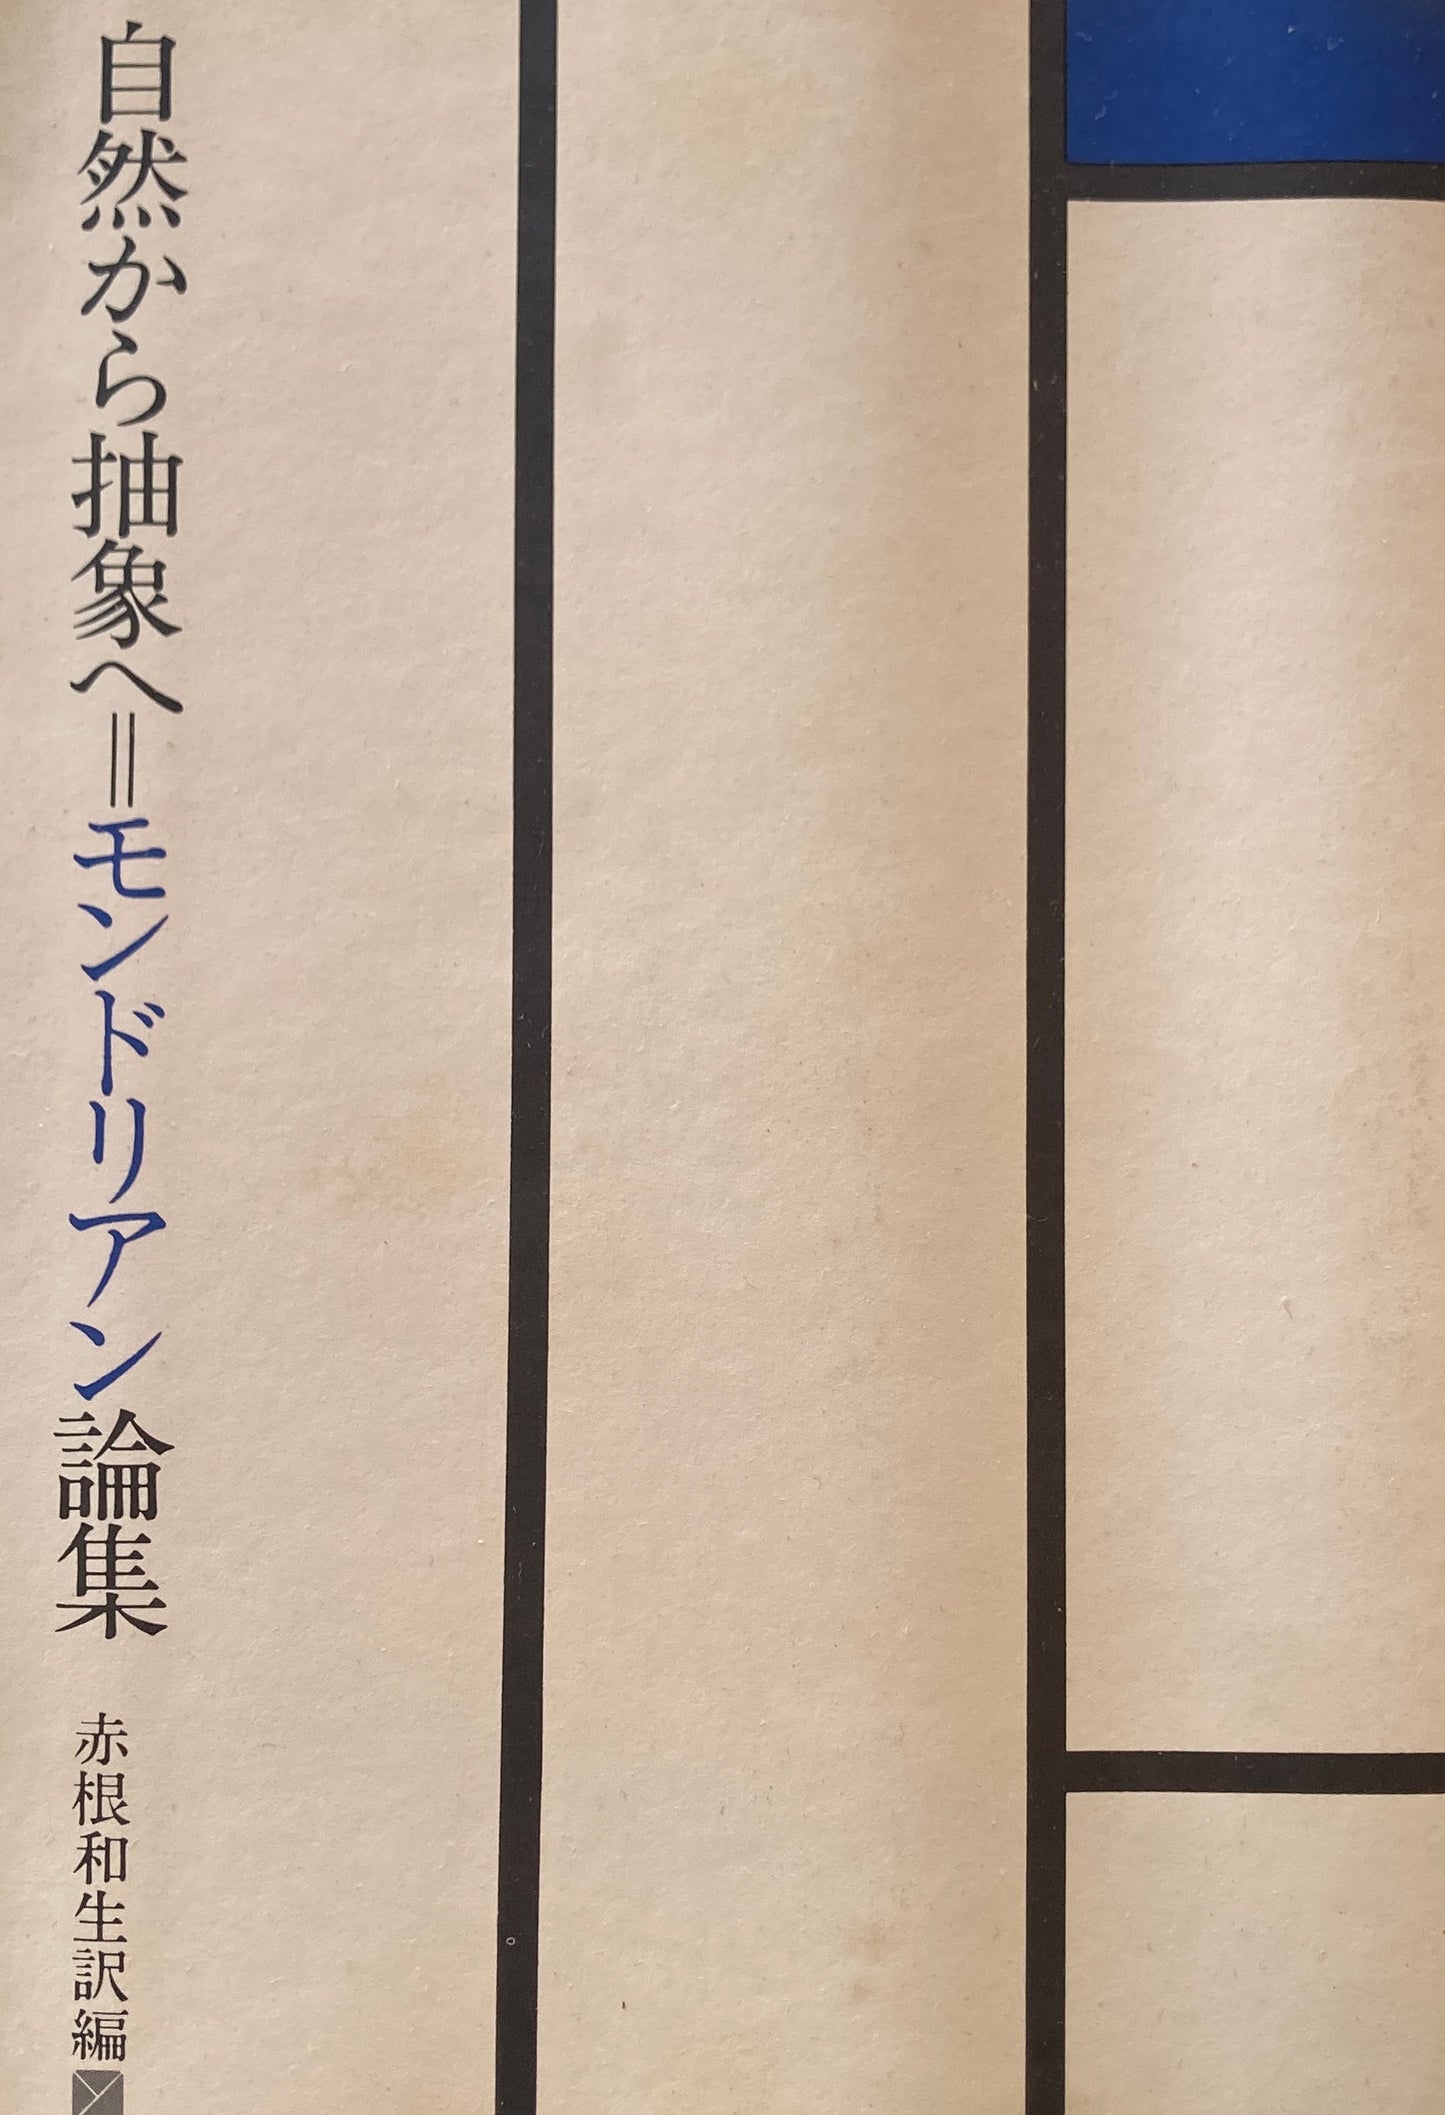 自然から抽象へ＝モンドリアン論集
赤根和生訳編